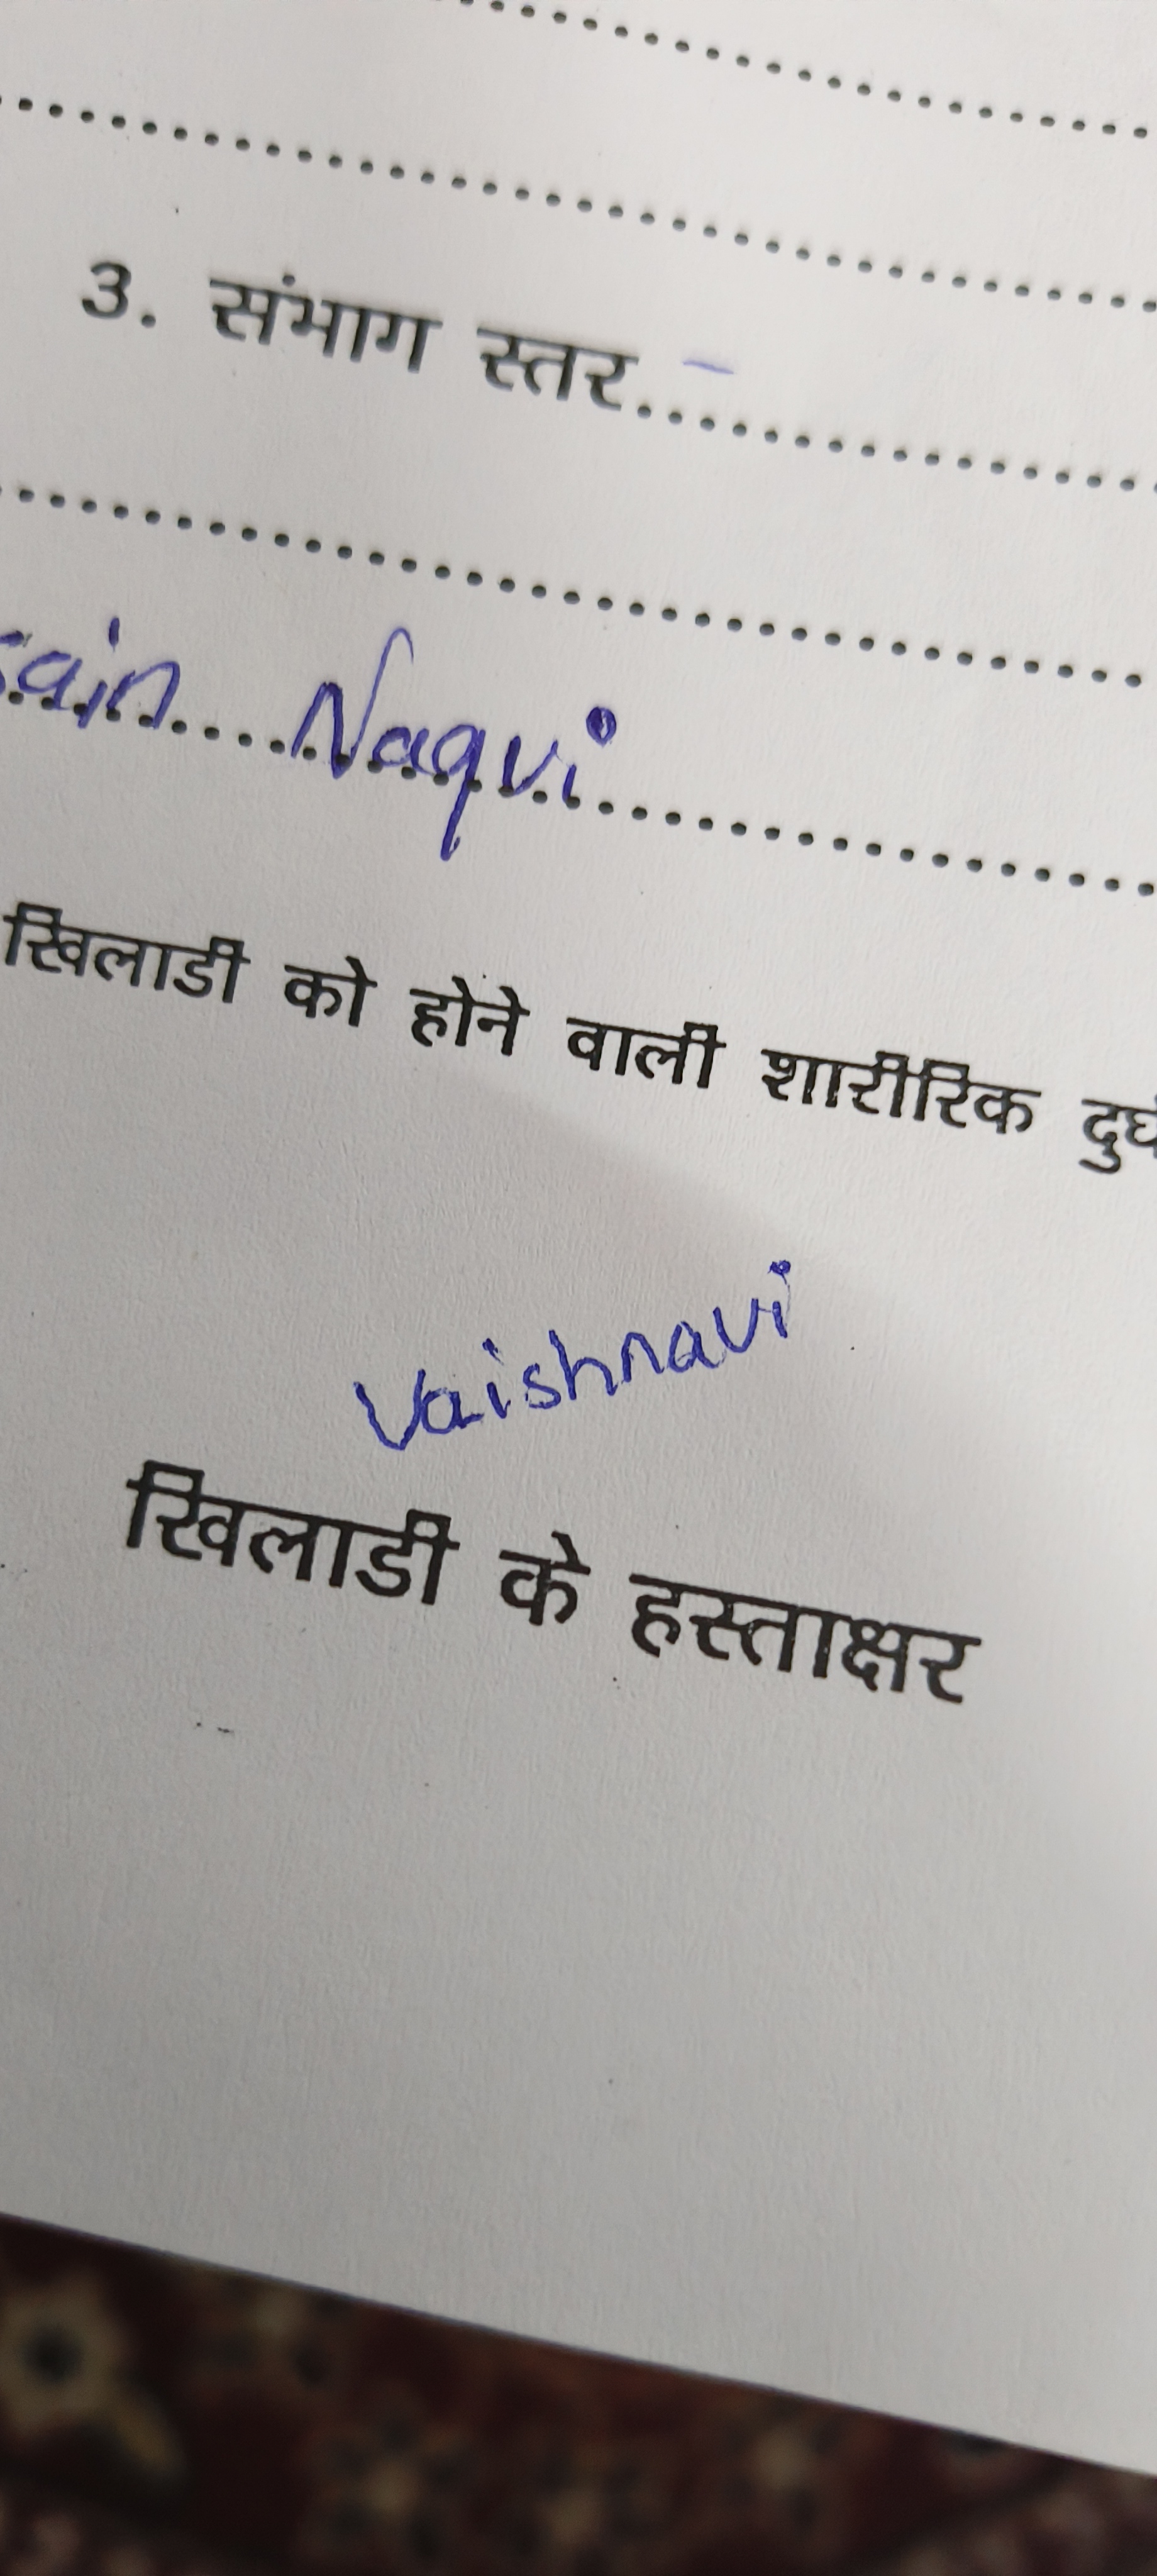 3. संभाग स्तर.. –
Naqvi
खिलाडी को होने वाली शारीरिक
Vaishnavi
खिलाडी के हस्ताक्षर